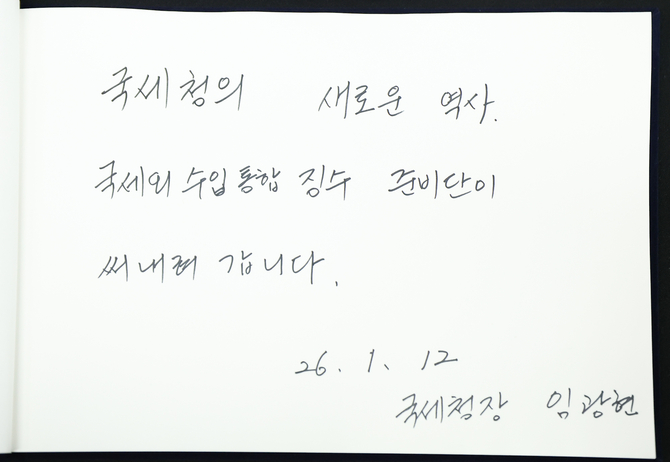 국세청의 새로운 역사.
국세외 수입 통합 징수 준비단이
써 내려 갑니다.
26. 1. 12
국세청장 임광현